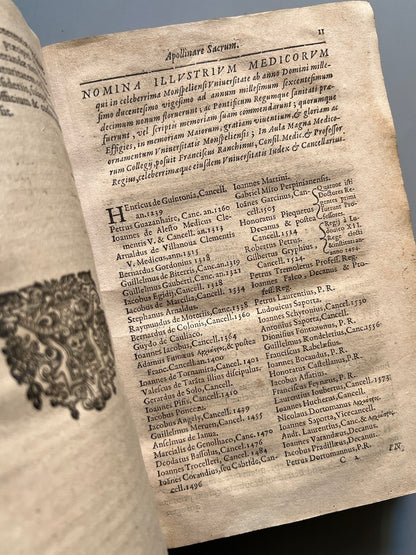 Apollinare Sacrum. 11
NOMINA ILLVSTRIVM MEDICORVM
qui in celeberrima Monspeliensi Vniuersitate ab anno Domini mille-
simo ducentesimo vigesimo ad annum millesimum sexcentesimum
decimum nonum floruerunt; ac Pontificum Regumque sanitati præ-
fuerunt, vel scriptis memoriam suam commendarunt; quorumque
Effigies, in memoriam Maiorum, gratiam viuentium & gloriam ac
ornamentum Vniuersitatis Monspeliensis, In Aula Magna Medico-
rum Collegij, posuit Franciscus Ranchinus, Consil. Medic. & Professor
Regius, celeberrimæque eiusdem Vniuersitatis Iudex & Cancellarius.
HEnricus de Guintonia, Cancell.
an. 1239
Petrus Guazanhaire, Canc. an. 1260
Ioannes de Alesto Medicus Cle-
mentis V. & Cancell. an. 1313
Arnaldus de Villanoua Clementis
V. Medicus, ann. 1313
Bernardus Gordonius. 1318
Guillelmus de Biterris, Canc. an. 1319
Guillelmus Gauberti, Canc. an. 1321
Iacobus Egidij, Cancell. 1318
Iacobus de Marcilia, Cancell. 1534
Stephanus Arnaldus.
Raymundus de Moleriis, Cancel. 1338
Bernardus de Colonis, Cancel. 1360
Guydo de Cauliaco.
Ioannes Iacobus, Cancel. 1364
Adamus Fumæus Ἀρχιατρός, & postea
Cancell. Franciæ.
Ioannes de Tornamira, Cancel. 1401
Valescus de Tarsta filius discipulus.
Gerardus de Solo, Cancell.
Iacobus Ponceau.
Iacobus Angeli, Cancell. 1433
Guillelmus Meruen, Cancel. 1455
Anselmus de Ianua.
Martialis de Genolhaco, Canc. 1476
Deodatus Bassolus, Cancel. 1476
Ioannes Trocelleri, Cancell. 1484
Ioannes Corandius, seu Cabride, Can-
cell. 1496
Ioannes Martini.
Gabriel Miro Perpinianensis.
Ioannes Garcinus, Can-
cell. 1505
Honoratus Piquetus
Decanus & postea
Cancell. 1534
Robertus Petrus.
Gilbertus Gryphius,
Cancell. 1524.
Quatuor isti
Doctores Re-
gentes
primi fue-
runt Pro-
fessores
Regij à Lu-
douico XII.
Rege dicto
instituti anno
Petrus Tremoletus Profess. Reg.
Ioannes Falco, Decanus & Pro-
fess. Reg.
Petrus Laurentius, P. R.
Ludouicus Saporta.
Ioannes Schyronius, Cancel. 1530
Antonius Saporta, Cancell.
Dionysius Fontanonus, P. R.
Guillelmus Rondeletius, Canc. 1556
Franciscus Rabelæsus.
Ioannes Bocaudus, P. R.
Honoratus Castellanus, P. R.
Iacobus Assatius.
Franciscus Feynæus, P. R.
Laurentius Ioubertus, Cancell. 1573
Ioannes Hucherus, Cancell.
Nicolaus Dortomanus, Ἀρχιατρός
Ioannes Saporta, Vicecancell.
Andr. Laurentius, Canc. & Ἀρχιατρός
Ioannes Varandæus, Decanus.
Iacobus Pradilleus, Decanus.
Petrus Dortomannus, P. R.
C 2 IN